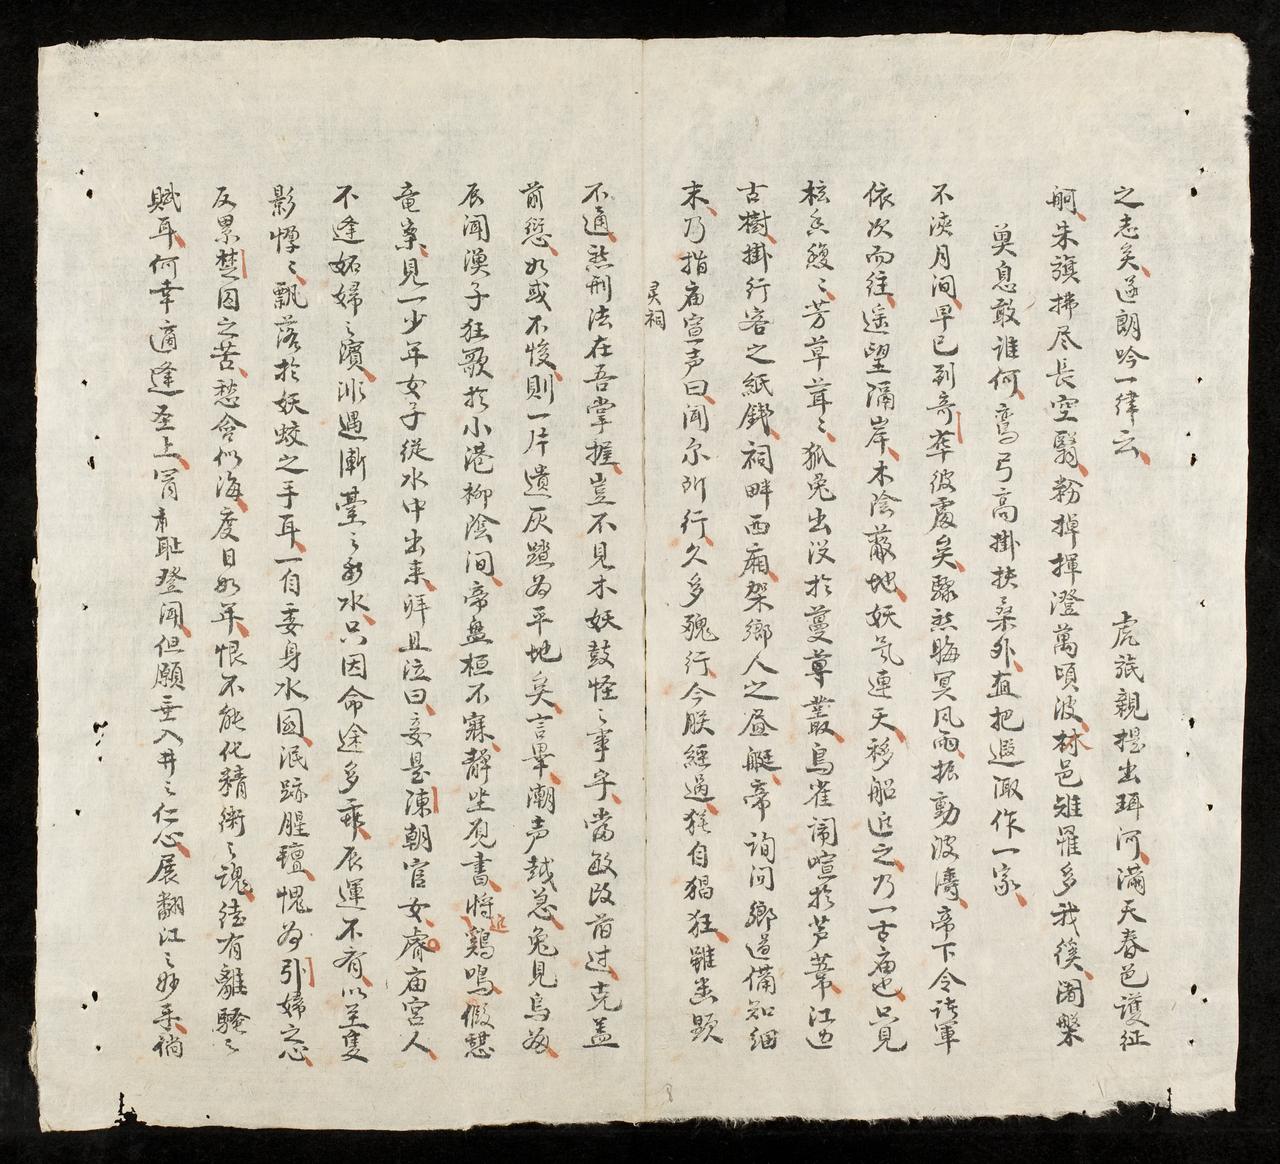 之志矣遂朗吟一律云　虎旅親提出珥河滿天春色護征
舸朱旗拂尽長空翳粉掉揮澄萬頃波林邑雖罹多我徯闍槃
莫息敢誰何鸞弓高掛扶桑外直把遐陬作一家
不浹月间早已到奇華彼處矣驟然晦冥风雨振動波濤帝下令諸軍
依次而往遥望隔岸木陰蔽地妖氛連天移船近之乃一古庙也只見
桉香馥〻芳草茸〻狐兔出没於蔓草叢鳥雀閙喧於芦葦江边
古樹掛行客之紙錢祠畔西廂架鄉人之畵艇帝询问鄉道備知細
末乃指庙宣声曰闻尔所行久多醜行今朕經過猶自猖狂雖幽顕
灵祠
不通然刑法在吾掌握豈不見木妖鼓怪〻事乎當敏改前过克盖
前愆如或不悛則一片遺灰蹠為平地矣言畢潮声越急兔見烏飛
辰闻漢子狂歌於小港柳陰间帝盘桓不寐静坐覌書將近鷄鳴假憇
竜案見一少年女子從水中出来拜且泣曰妾是陳朝官女睿庙宫人
不逢妬婦〻濱派遇漸臺〻水只因命途多乖辰運不有以至隻
影惸〻飘落於妖蛟之手耳一自委身水國泯跡腥羶愧为引婦之心
反累楚囚之苦愁含似海度日如年恨不能化精術〻魂徒有離騷〻
賦耳何幸適逢圣上冐耻登闻但願垂入井〻仁心展翻江〻妙手倘